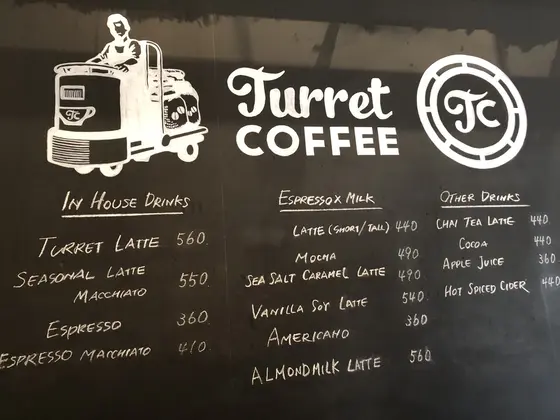 TC
Turret
COFFEE
TC
IN HOUSE DRINKS
TURRET LATTE 560.
SEASONAL LATTE
MACCHIATO 550.
ESPRESSO 360.
ESPRESSO MACCHIATO 410.
ESPRESSO X MILK
LATTE (SHORT/TALL) 440
MOCHA 490
SEA SALT CARAMEL LATTE 490
VANILLA SOY LATTE 540
AMERICANO 360
ALMONDMILK LATTE 560
OTHER DRINKS
CHAI TEA LATTE 440
COCOA 440
APPLE JUICE 360
HOT SPICED CIDER 440